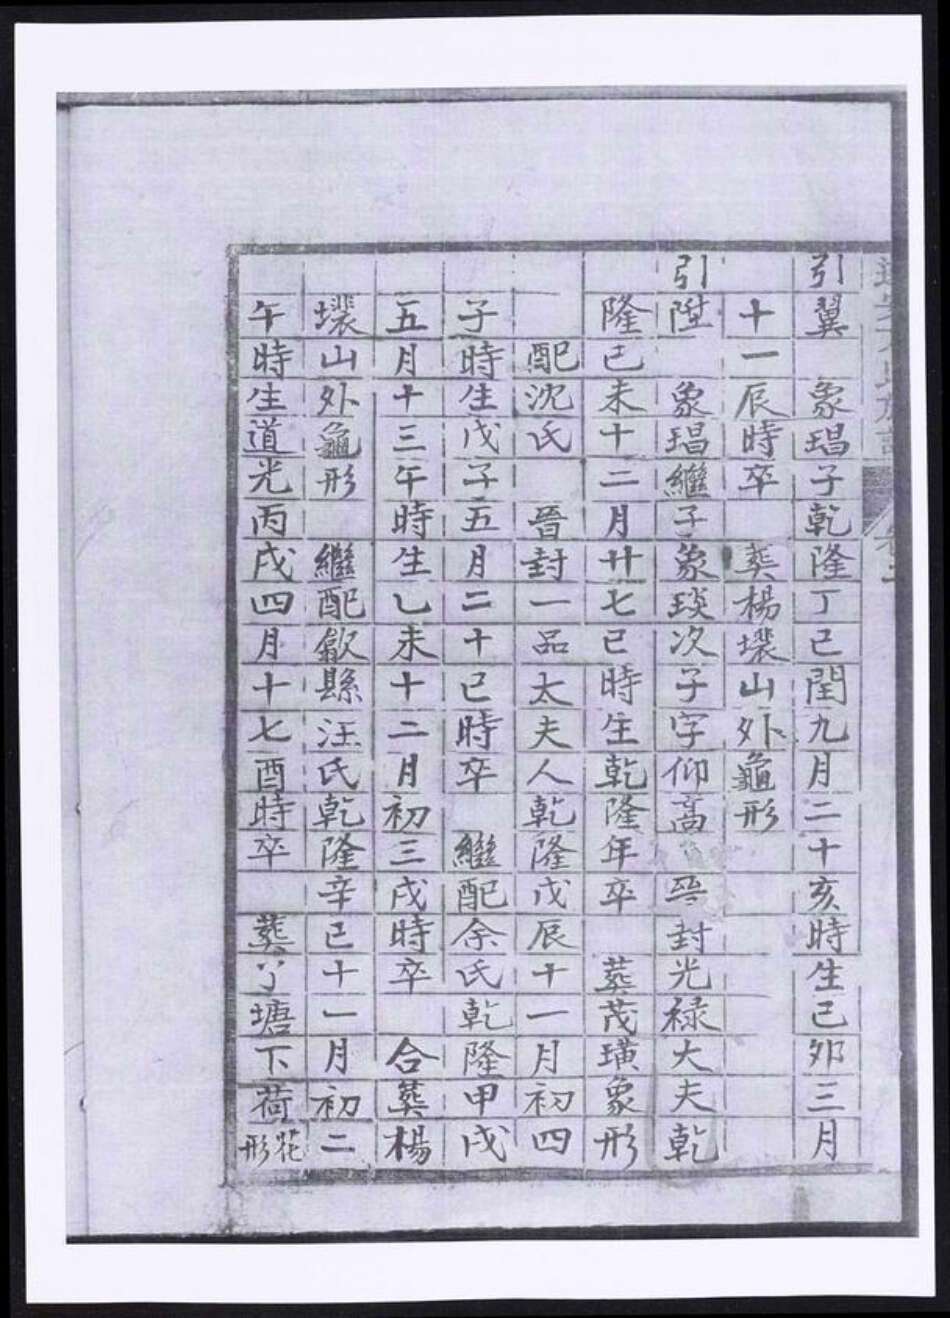 引翼　象琩子乾隆丁巳閏九月二十亥時生己卯三月
十一辰時卒　葬楊壋山外龜形
引陞　象琩繼子象琰次子字仰高　晉封光禄大夫乾
隆己未十二月廿七巳時生乾隆年卒　葬茂璜象形
配沈氏　晉封一品太夫人乾隆戊辰十一月初四
子時生戊子五月二十巳時卒　繼配余氏乾隆甲戌
五月十三午時生乙未十二月初三戌時卒　合葬楊
壋山外龜形　繼配歙縣汪氏乾隆辛巳十一月初二
午時生道光丙戌四月十七酉時卒　葬丫塘下荷花形